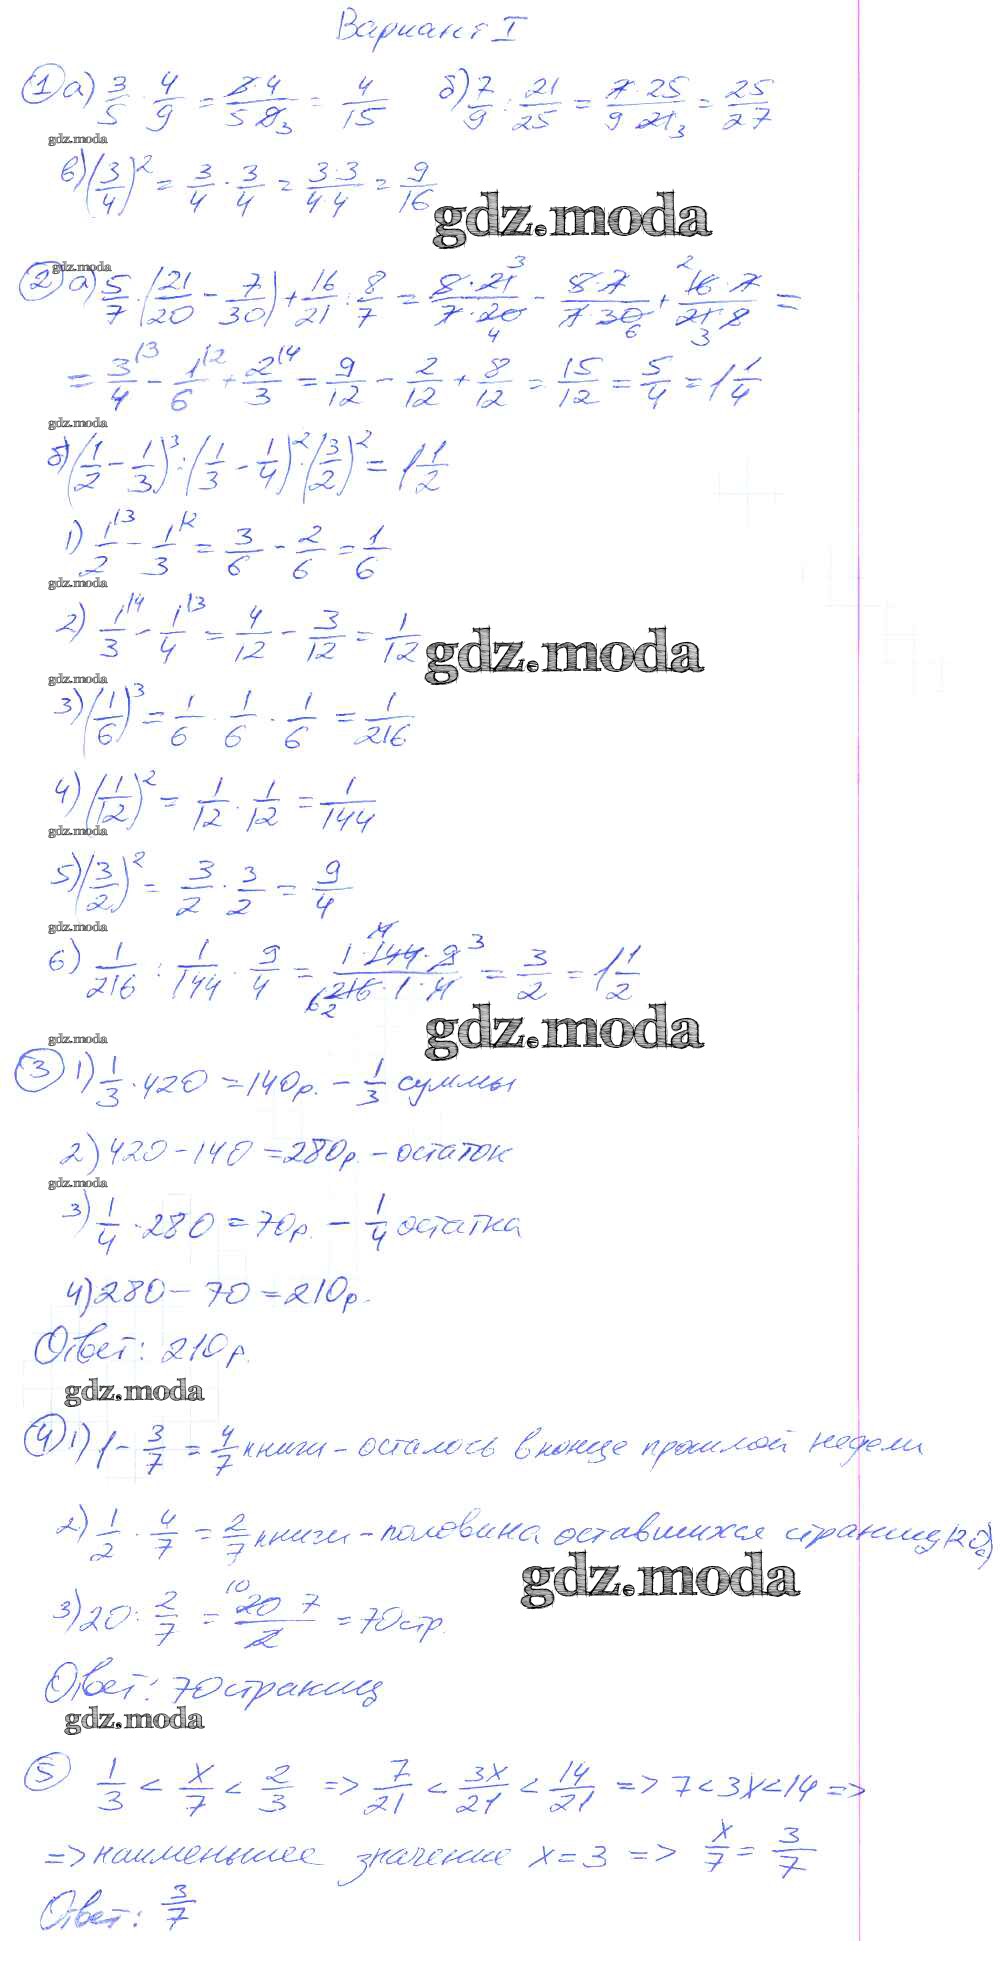 Вариант I
① а) 3/5 · 4/9 = 3·4/5·9 3 = 4/15 б) 7/9 : 21/25 = 7·25/9·21 3 = 25/27
gdz.moda
в) (3/4)² = 3/4 · 3/4 = 3·3/4·4 = 9/16
gdz.moda
gdz.moda
② а) 5/7 · (21/20 − 7/30) + 16/21 : 8/7 = 5·21 3/7·20 4 − 5·7/7·30 6 + 2 16·7/21 3·8 =
= 3\3/4 − 1\2/6 + 2\4/3 = 9/12 − 2/12 + 8/12 = 15/12 = 5/4 = 1 1/4
gdz.moda
б) (1/2 − 1/3)³ : (1/3 − 1/4)² · (3/2)² = 1 1/2
1) 1\3/2 − 1\2/3 = 3/6 − 2/6 = 1/6
gdz.moda
2) 1\4/3 − 1\3/4 = 4/12 − 3/12 = 1/12
gdz.moda
gdz.moda
3) (1/6)³ = 1/6 · 1/6 · 1/6 = 1/216
4) (1/12)² = 1/12 · 1/12 = 1/144
gdz.moda
5) (3/2)² = 3/2 · 3/2 = 9/4
gdz.moda
6) 1/216 : 1/144 · 9/4 = 1·144·9 3/216·1·4 = 3/2 = 1 1/2
gdz.moda
gdz.moda
③ 1) 1/3 · 420 = 140р. − 1/3 суммы
2) 420 − 140 = 280р. − остаток
gdz.moda
3) 1/4 · 280 = 70р. − 1/4 остатка
4) 280 − 70 = 210р.
Ответ: 210р.
gdz.moda
④ 1) 1 − 3/7 = 4/7 книги − осталось в конце прошлой недели
2) 1/2 · 4/7 = 2/7 книги − половина оставшихся страниц (20)
gdz.moda
3) 20 : 2/7 = 10 20 7/2 = 70стр.
Ответ: 70 страниц
gdz.moda
⑤ 1/3 < x/7 < 2/3 => 7/21 < 3x/21 < 14/21 => 7 < 3x < 14 =>
=> наименьшее значение x = 3 => x/7 = 3/7
Ответ: 3/7